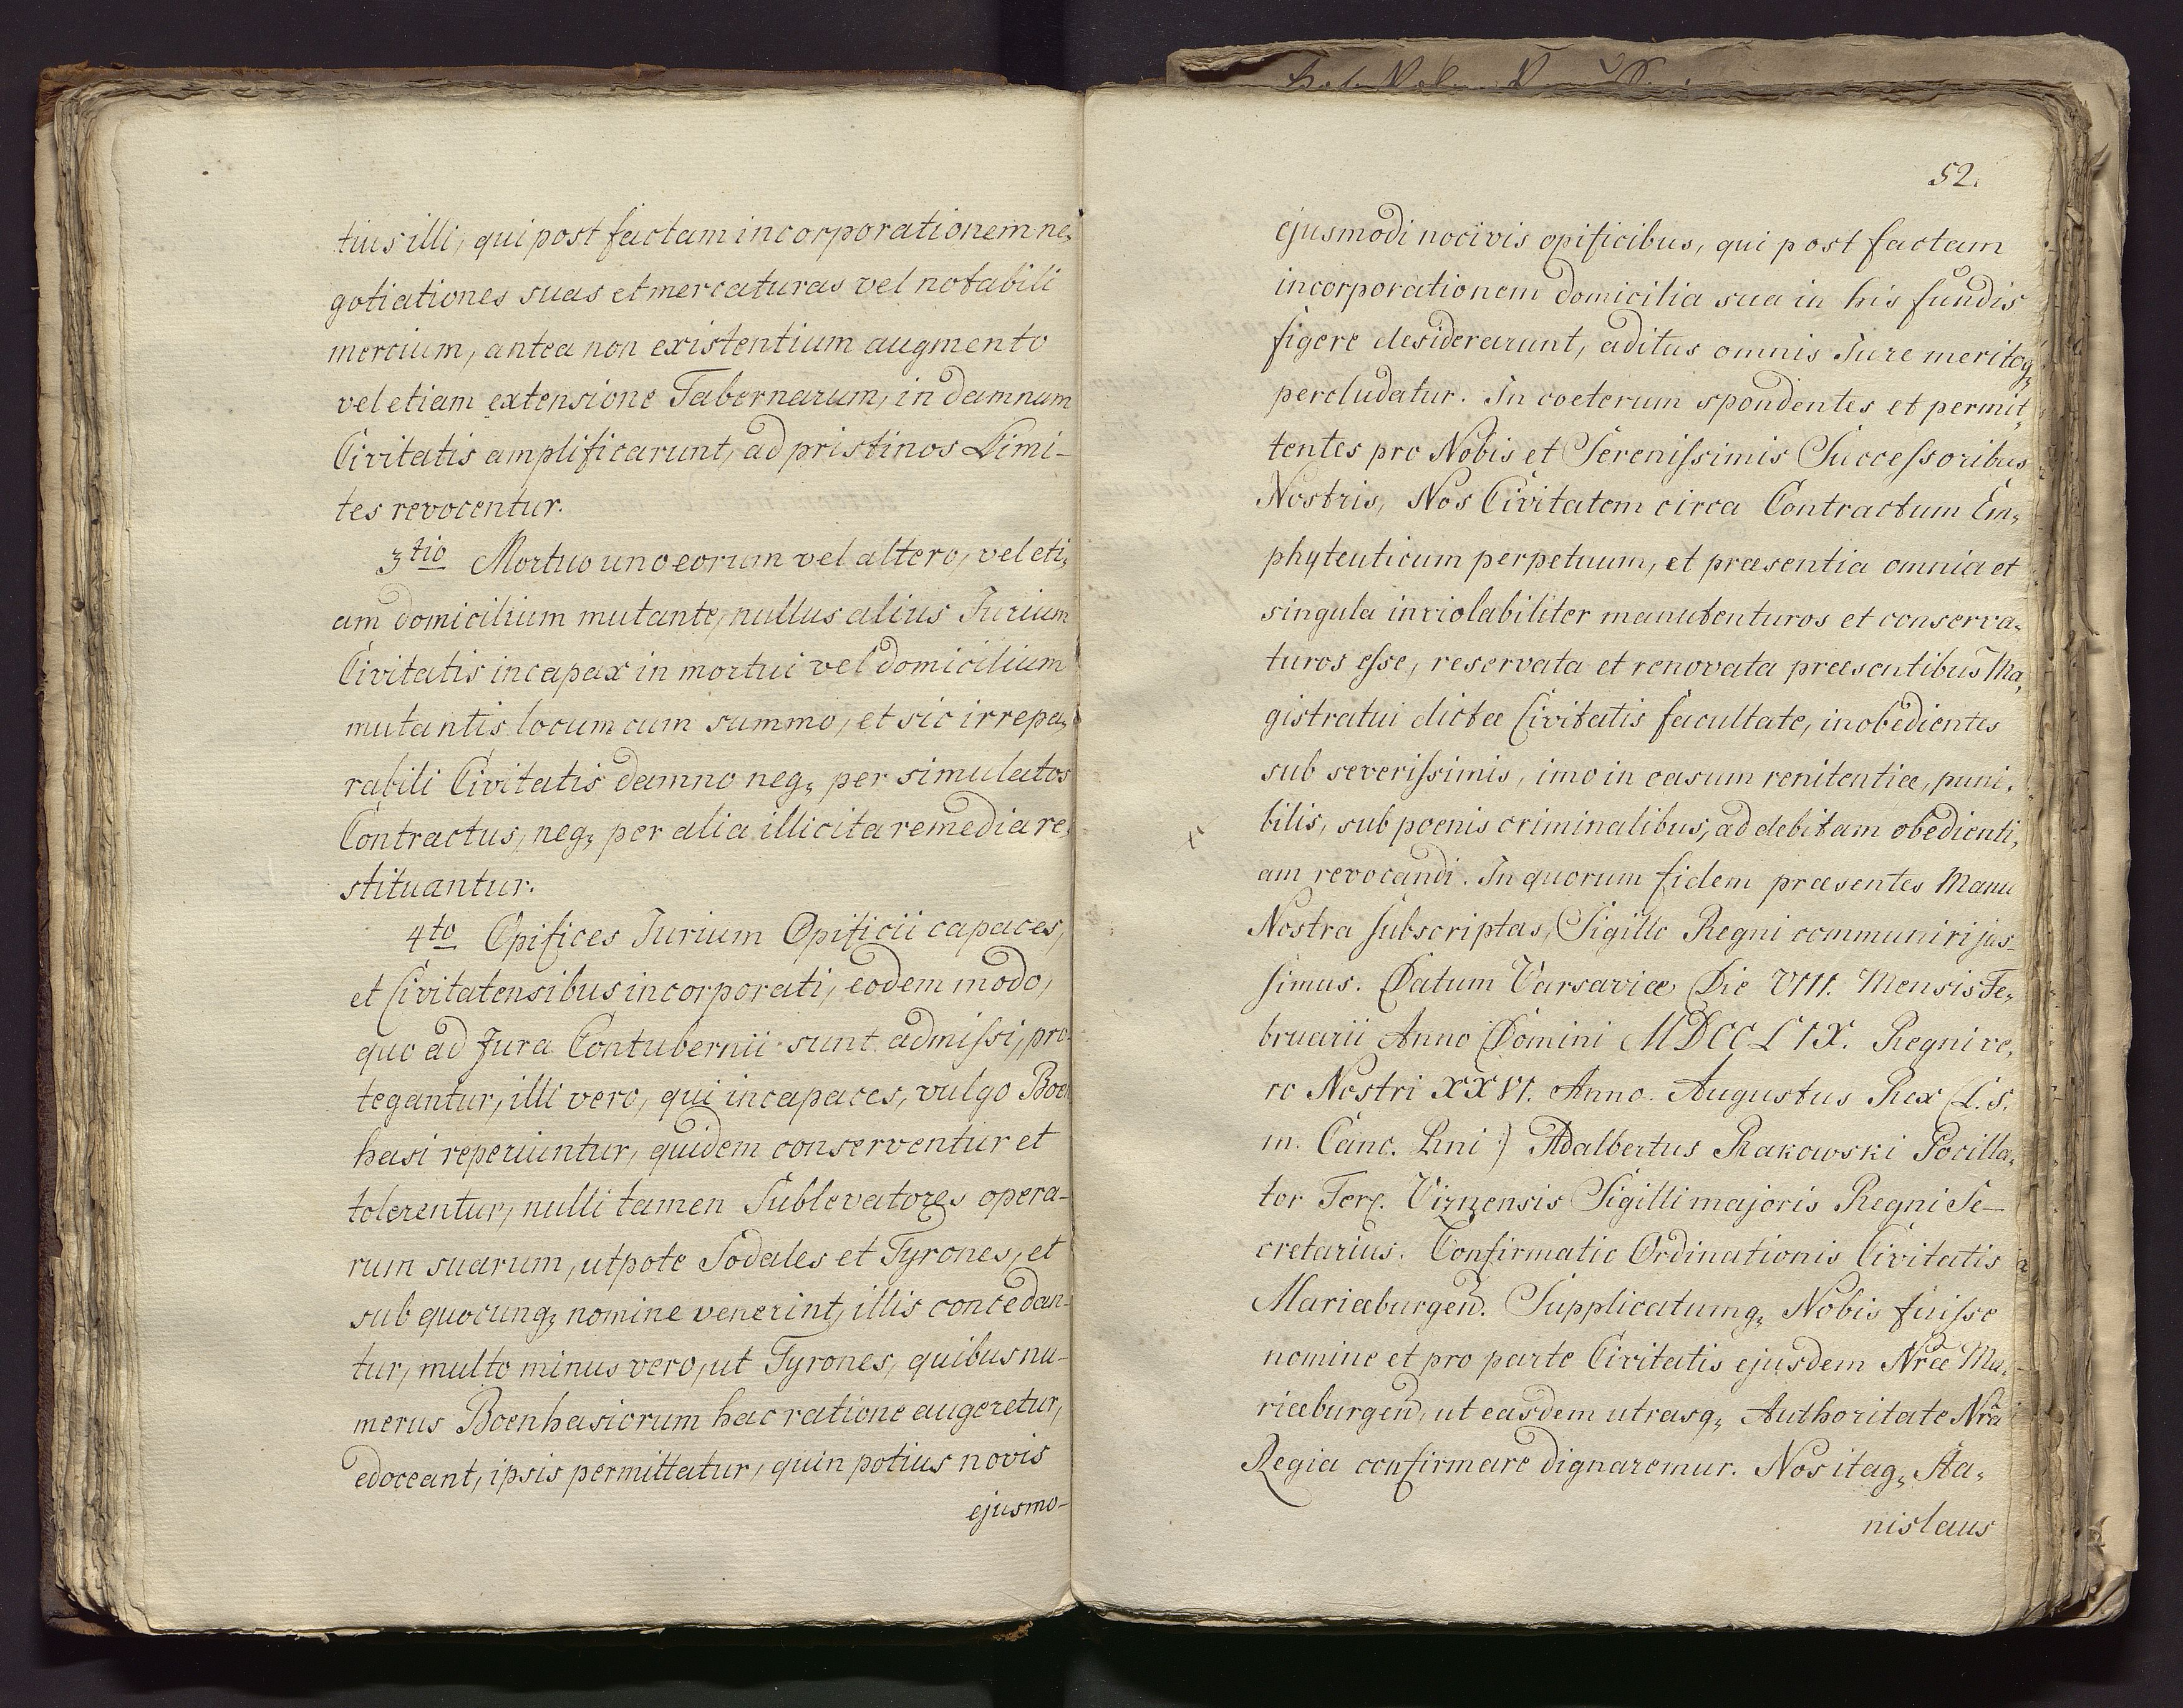 tius illi, qui post factam incorporationem ne,
gotiationes suas et mercaturas vel notabili
mercium, antea non existentium augmento
vel etiam extensione Tabernarum, in damnum
Civitatis amplificarunt, ad pristinos Limi-
tes revocentur.
3tio Mortuo uno eorum vel altero, vel eti,
am domicilium mutante, nullus alius Jurium
Civitatis incapax in mortui vel domicilium
mutantis locum cum summo, et sic irrepa,
rabili Civitatis damno neq, per simulatos
Contractus, neq, per alia illicita remedia re,
stituantur.
4to Opifices Jurium Opificii capaces,
et Civitatensibus incorporati, eodem modo,
quo ad Jura Contubernii sunt admissi, pro,
tegantur, illi vero, qui incapaces, vulgo Boen
hasi reperiuntur, quidem conserventur et
tolerentur, nulli tamen Sublevatores opera-
rum suarum, utpote Sodales et Tyrones, et
sub quocunq, nomine venerint, illis concedan-
tur, multo minus vero, ut Tyrones, quibus nu-
merus Boenhasiorum hac ratione augeretur,
edoceant, ipsis permittatur, quin potius novis
ejusmo-
52.
ejusmodi nocivis opificibus, qui post factam
incorporationem domicilia sua in his fundis
figere desiderarunt, aditus omnis Jure meritoq,
percludatur. In coeterum spondentes et permit,
tentes pro Nobis et Serenissimis Successoribus
Nostris, Nos Civitatem circa Contractum Em,
phyteuticum perpetuum, et praesentia omnia et
singula inviolabiliter manutenturos et conserva,
turos esse, reservata et renovata praesentibus Ma,
gistratui dictae Civitatis facultate, inobedientes
sub severissimis, imo in casum renitentiae, puni,
bilis, sub poenis criminalibus, ad debitam obedienti,
x
am revocandi. In quorum fidem praesentes Manu
Nostra subscriptas, Sigillo Regni communiri jus-
simus. Datum Varsaviae Die VIII. Mensis Fe,
bruarii Anno Domini MDCCLIX. Regni ve,
ro Nostri XXVI. Anno. Augustus Rex (L. S.
m. Canc. Rni:) Adalbertus Rakowski Pocilla,
tor Terr. Viznensis Sigilli majoris Regni Se-
cretarius. Confirmatio Ordinationis Civitatis
Mariaeburgen. Supplicatumq, Nobis fuisse
nomine et pro parte Civitatis ejusdem Nrae Ma,
riaeburgen, ut easdem utrasq, Authoritate Nra
Regia confirmare dignaremur. Nos itaq, Sta,
nislaus